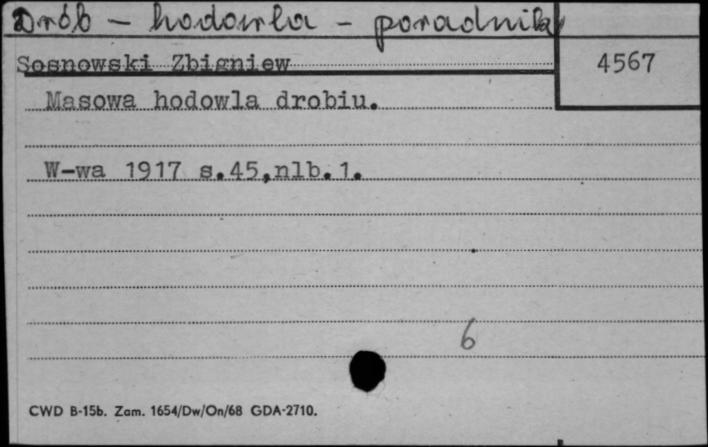 Drób - hodowla - poradniki
Sosnowski Zbigniew
4567
Masowa hodowla drobiu.
W-wa 1917 s.45,nlb.1.
6
CWD B-15b. Zam. 1654/Dw/On/68 GDA-2710.